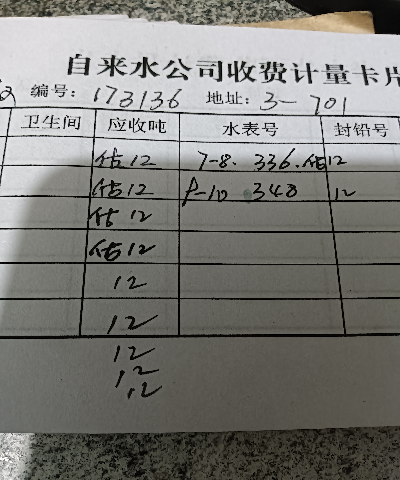 自来水公司收费计量卡片
编号: 173136 地址: 3-701
卫生间 应收吨 水表号 封铅号
估12 7-8. 336. 估12
估12 8-10 348 12
估12
估12
12
12
12
12
12